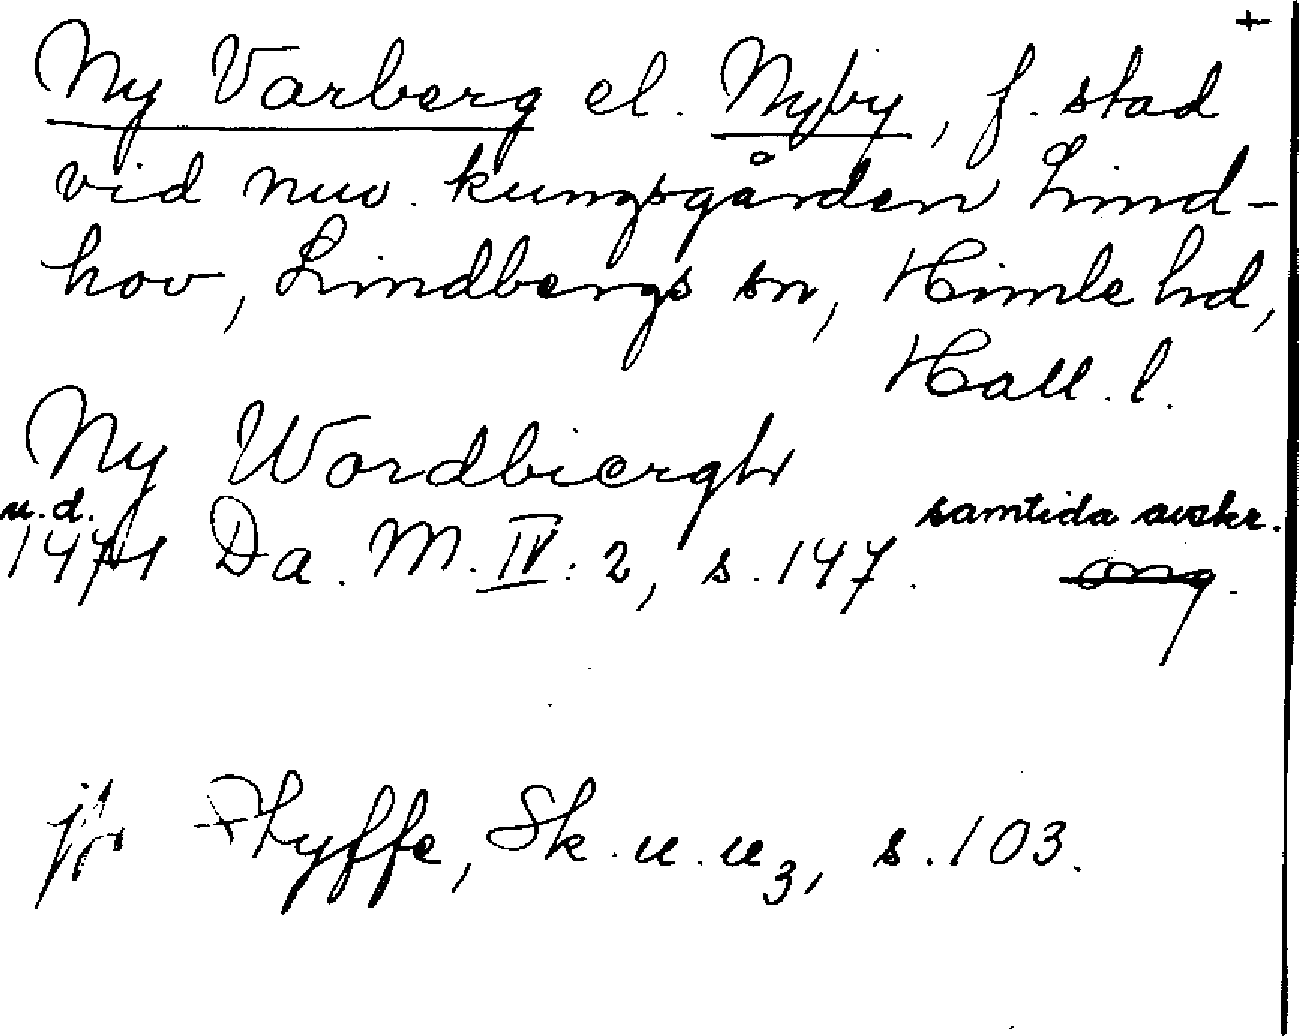 +
Ny Varberg el. Nyby, f. stad
vid nuv. kungsgården Lind-
hov, Lindbergs sn, Himle hd,
Hall. l.
Ny Wordbiergh
u.d. samtida avskr.
1471 Da. M. IV: 2, s. 147. orig.
jfr Styffe, Sk. u. u3, s. 103.